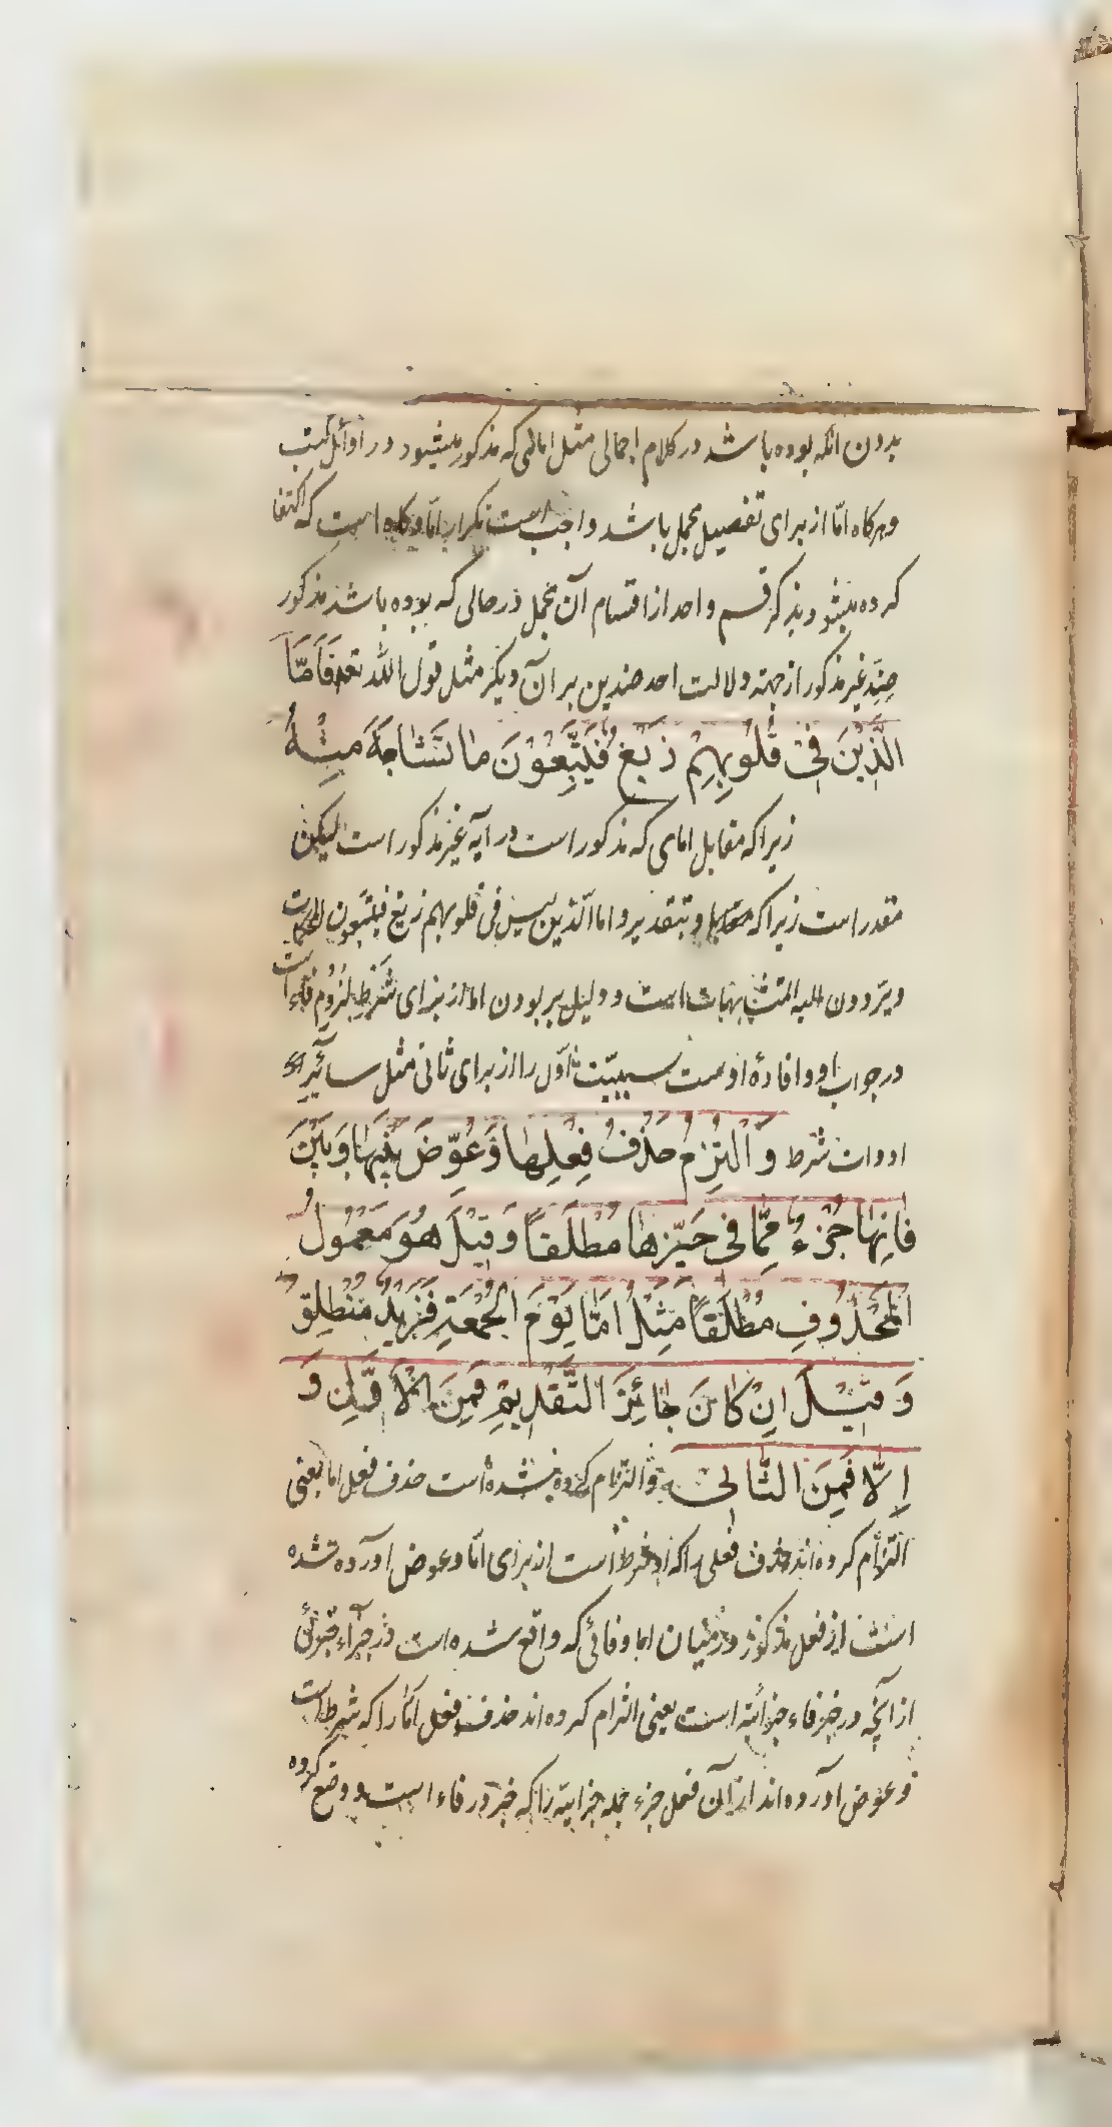 بدون انکه بوده باشد در کلام اجمالی مثل امائی که مذکور میشود در اوائل کتب
وهرکاه امّا از برای تفصیل مجمل باشد واجب است تکرار امّا وکاه است که اکتفا
کرده میشود بذکر قسم واحد از اقسام آن مجمل در حالی که بوده باشد مذکور
ضِدِّ غیر مذکور از جهته دلالت احد ضدین بر آن دیگر مثل قول الله تعه فَاَمَّا
الَّذِیْنَ فِیْ قُلُوبِهِمْ زَیْغٌ فَیَتَّبِعُوْنَ مٰا تَشٰابَهَ مِنْهُ
زیراکه مقابل امای که مذکور است در آیه غیر مذکور است لیکن
مقدر است زیراکه وبتقدیر واما الّذین لیس فی قلوبهم زیغ فیتبعون المحکمات
ویردون الیه المتشابهات است ودلیل بر بودن اما از برای شَرْط لُزُوْمِ فاء است
در جواب او وافادهٔ اوست سببیّت اوّل را از برای ثانی مثل سائر
ادوات شرط وَالْتُزِمَ حَذْفُ فِعْلِهٰا وَعُوِّضَ بَیْنَهٰا وَبَیْنَ
فٰائِهٰا جُزْءٌ مِمّٰا فی حَیِّزِهٰا مُطْلَقاً وَقیْلَ هُوَ مَعْمُولُ
الْمَحْذُوْفِ مُطْلَقاً مِثْلُ اَمّٰا یَوْمَ الْجُمْعَةِ فَزَیْدٌ مُنْطَلِقٌ
وَقیْلَ اِنْ کٰانَ جٰائِزَ التَّقْدِیْمِ فَمِنَ الْاَوَّلِ وَ
اِلّٰا فَمِنَ الثّٰانِیْ والتزام کرده شده است حذف فعل اما یعنی
التزام کرده اند حذف فعلی را که شرط است از برای امّا وعوض آورده شده
است از فعل مذکور در میان اما وفائی که واقع شده است در جزاء جزئی
از آنچه در حیز فاء جزائیة است یعنی التزام کرده اند حذف فعل امّا را که شرط است
وعوض آورده اند از آن فعل جزء جمله جزائیة را که در فاء است ووضع کرده